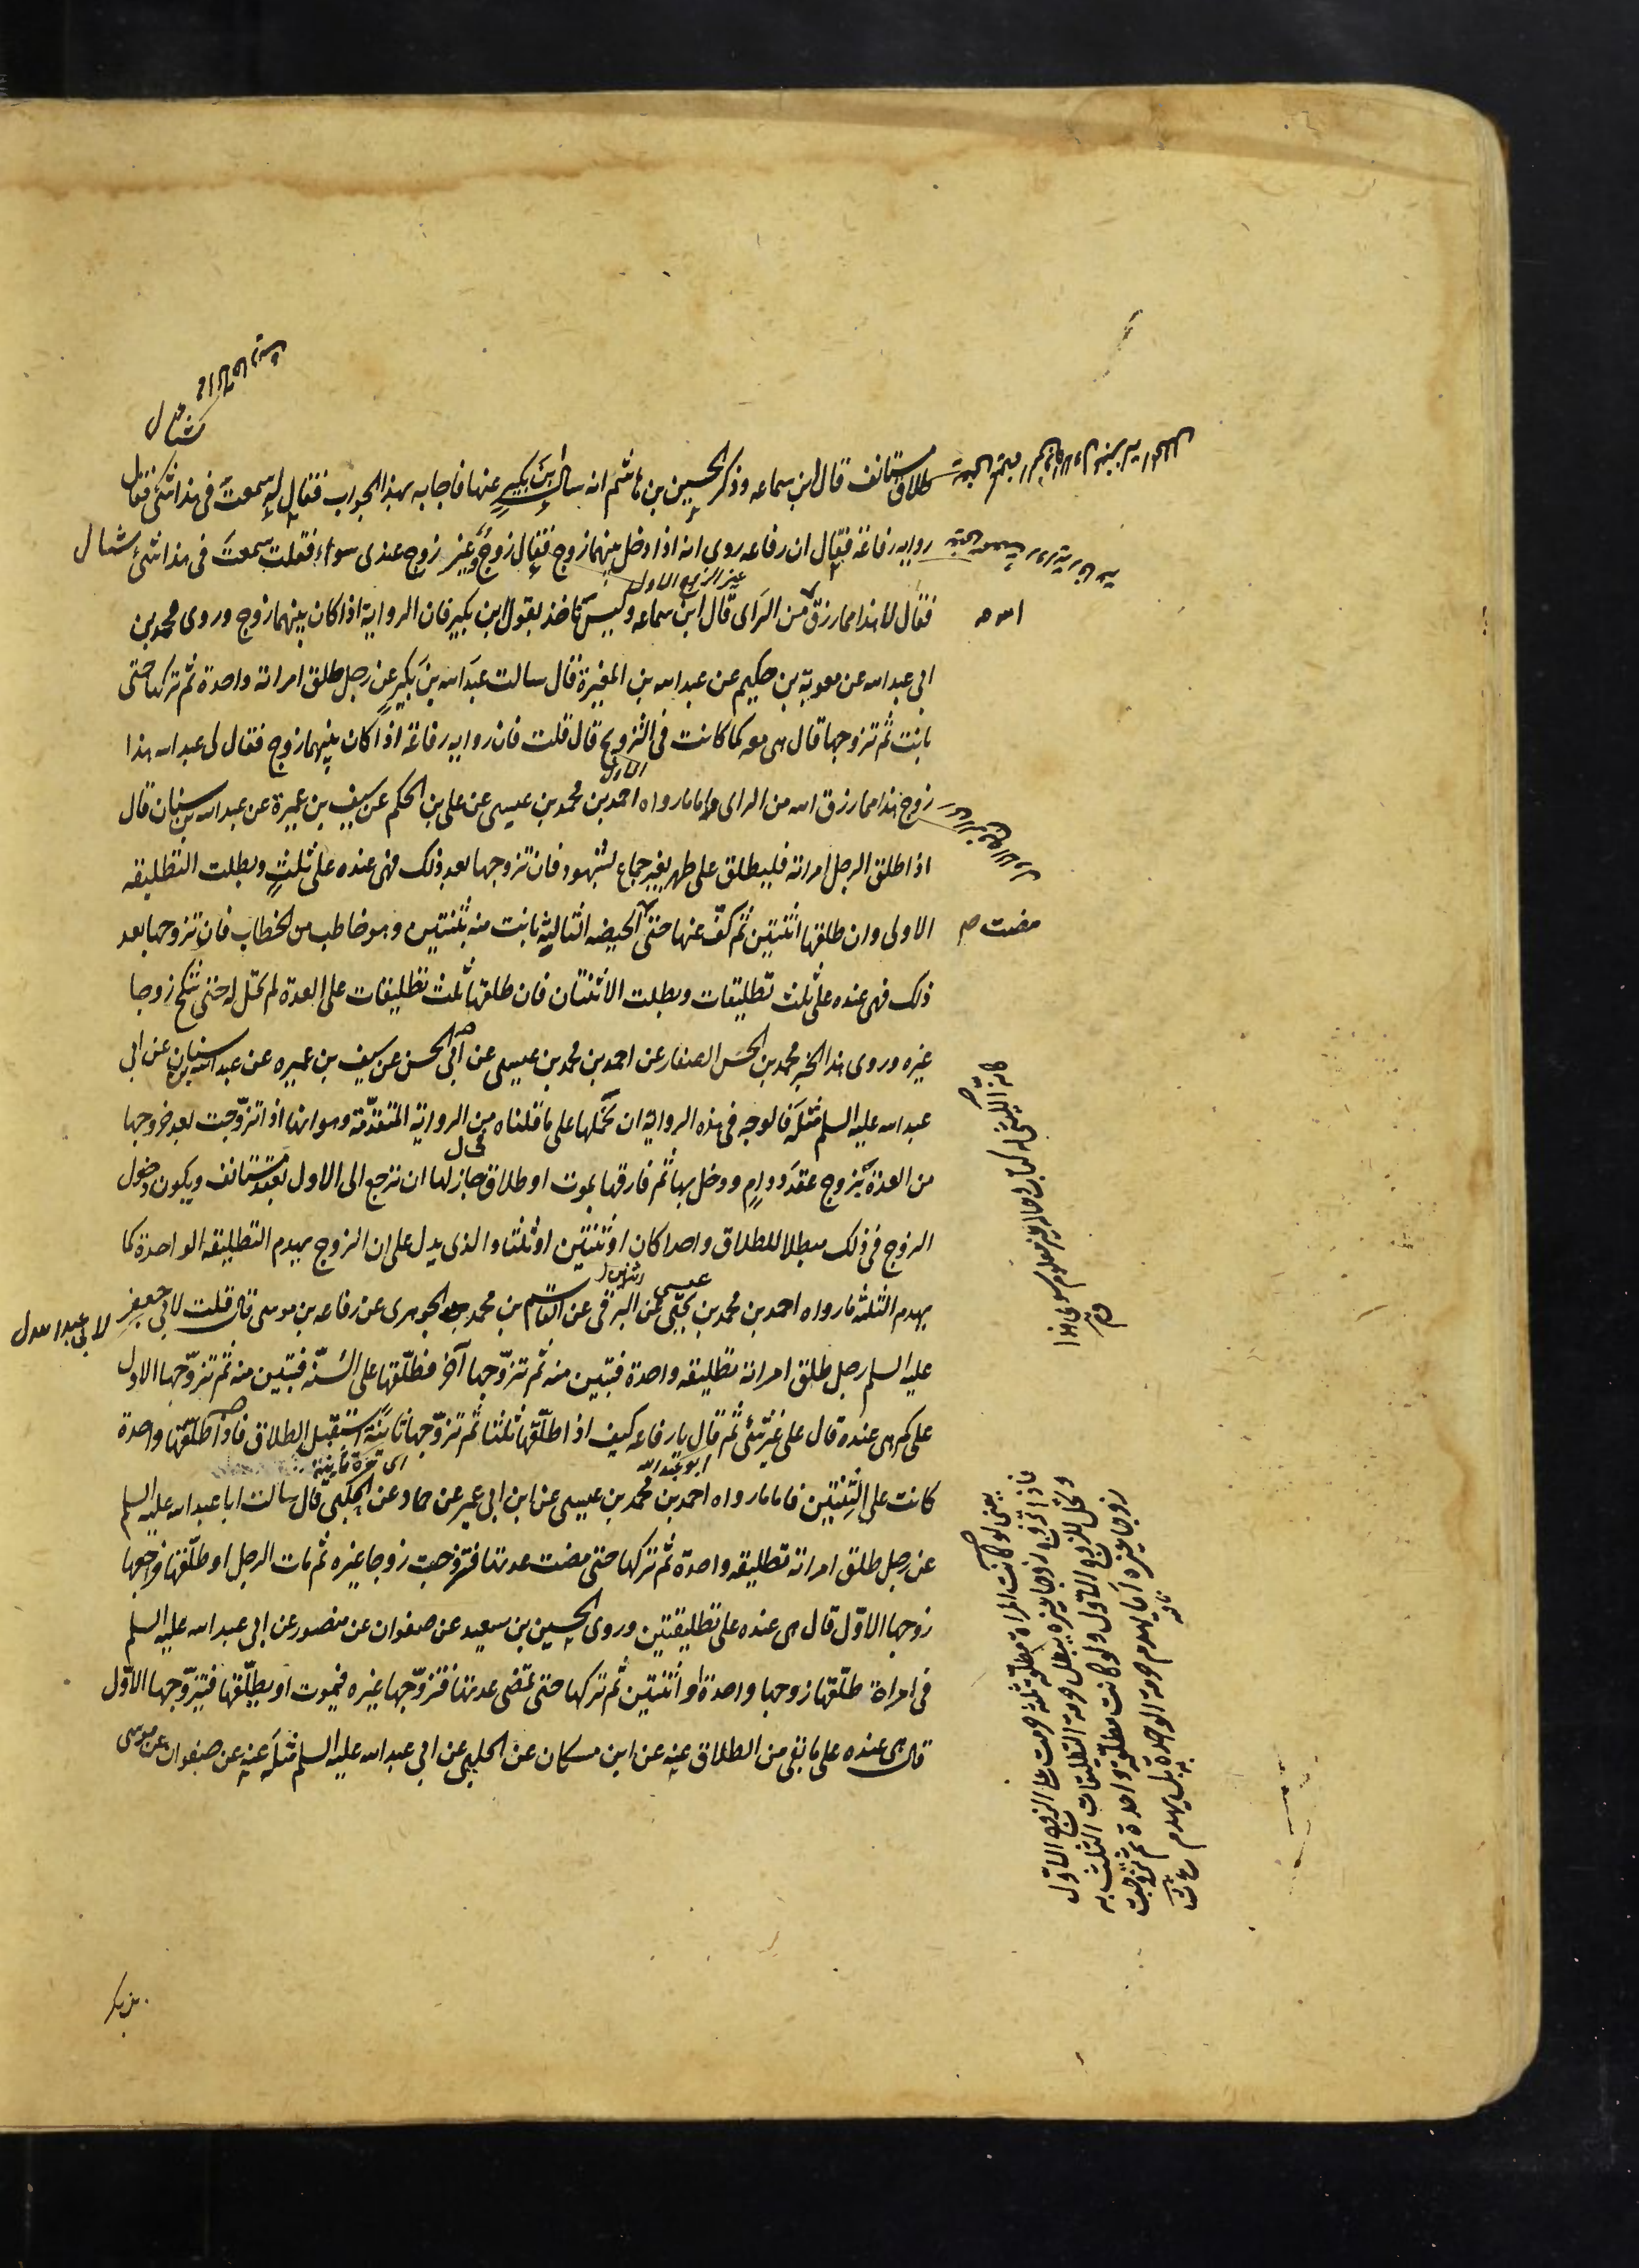 طلاق مستانف قال ابن سماعه وذكر الحسين بن هاشم انه سال ابن بكير عنها فاجابه بهذا الجواب فقال له سمعت فى هذا شئ فقال
روايه رفاعة فقال ان رفاعه روى انه اذا دخل بينهما زوج فقال زوج وغير زوج عندى سواء فقلت سمعت فى هذا شئ
فقال لا هذا مما رزق من الراى قال ابن سماعه وليس ناخذ بقول ابن بكير فان الرواية اذا كان بينهما زوج وروى محمد بن
ابى عبد الله عن معوية بن حكيم عن عبد الله بن المغيرة قال سالت عبد الله بن بكير عن رجل طلق امراته واحدة ثم تركها حتى
بانت ثم تزوجها قال هى معه كما كانت فى التزويج قال قلت فان روايه رفاعة اذا كان بينهما زوج فقال لى عبد الله هذا
زوج هذا مما رزق الله من الراى واما ما رواه احمد بن محمد بن عيسى عن على بن الحكم عن سيف بن عميرة عن عبد الله بن سنان قال
اذا طلق الرجل امراته فليطلق على طهر بغير جماع بشهود فان تزوجها بعد ذلك فهى عنده على ثلث وبطلت التطليقه
الاولى وان طلقها اثنتين ثم كف عنها حتى الحيضه الثالثه بانت منه بثنتين وهو خاطب من الخطاب فان تزوجها بعد
مضت
ذلك فهى عنده على ثلث تطليقات وبطلت الاثنتان فان طلقها ثلث تطليقات على العدة لم تحل له حتى تنكح زوجا
غيره وروى هذا الخبر محمد بن الحسن الصفار عن احمد بن محمد بن عيسى عن ابى الحسن عن سيف بن عميره عن عبد الله بن سنان عن ابى
عبد الله عليه السلم مثله فالوجه فى هذه الرواية ان نحملها على ما قلناه من الرواية المتقدمة وهو انها اذا تزوجت بعد خروجها
من العدة بزوج عقد دوام ودخل بها ثم فارقها بموت او طلاق جاز لها ان ترجع الى الاول بعقد مستانف ويكون دخول
الزوج فى ذلك مبطلا للطلاق واحدا كان او ثنتين او ثلثا والذى يدل على ان الزوج يهدم التطليقه الواحدة كما
يهدم الثلثه ما رواه احمد بن محمد بن عيسى عن البرقى عن القاسم بن محمد الجوهرى عن رفاعه بن موسى قال قلت لابى جعفر
عليه السلم رجل طلق امراته تطليقه واحدة فتبين منه ثم تزوجها آخر فطلقها على السنة فتبين منه ثم تزوجها الاول
على كم هى عنده قال على غير شئ ثم قال يا رفاعه كيف اذا طلقها ثلثا ثم تزوجها ثانية استقبل الطلاق فاذا طلقها واحدة
كانت على اثنتين فاما ما رواه احمد بن محمد بن عيسى عن ابن ابى عمير عن حماد عن الحلبى قال سالت ابا عبد الله عليه السلم
عن رجل طلق امراته تطليقه واحدة ثم تركها حتى مضت عدتها فتزوجت زوجا غيره ثم مات الرجل او طلقها فراجعها
زوجها الاول قال هى عنده على تطليقتين وروى الحسين بن سعيد عن صفوان عن منصور عن ابى عبد الله عليه السلم
فى امراة طلقها زوجها واحدة او اثنتين ثم تركها حتى تمضى عدتها فتزوجها غيره فيموت او يطلقها فيتزوجها الاول
قال هى عنده على ما بقى من الطلاق عنه عن ابن مسكان عن الحلبى عن ابى عبد الله عليه السلم مثله عنه عن صفوان عن موسى
يعنى لو كانت المراة مطلقة ثلثه حرمت على الزوج الاول
فاذا تزوج زوجا غيره يبطل حرمة التطليقات الثلث به
وتحل للزوج الاول ولو كانت مطلقة واحدة ثم تزوجت
زوجا غيره
بن بكر